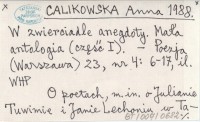 CALIKOWSKA Anna 1988.
W zwierciadle anegdoty. Mała
antologia (część I). – Poezja
(Warszawa) 23, nr 4: 6-17, il.
WHP
O poetach, m.in. o Julianie
Tuwimie i Janie Lechoniu w "Ta-